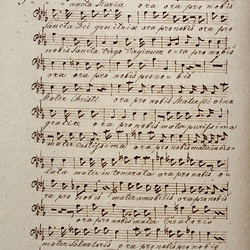 Sancta Maria ora ora pro nobis
Sancta Dei genitrix ora pro nobis ora pro
nobis Sancta Virgo Virginum ora ora pro nobis
ora ora pro nobis pro no bis
Mater Christi ora pro nobis Mater
gratiæ ora ora pro nobis mater purissima
mater castissima ora pro nobis mater
lata mater intemerata ora ora pro nobis
ora pro nobis mater amabilis ora pro nobis
ora ora pro nobis mater Creatoris
mater Salvatoris ora pro nobis ora pro